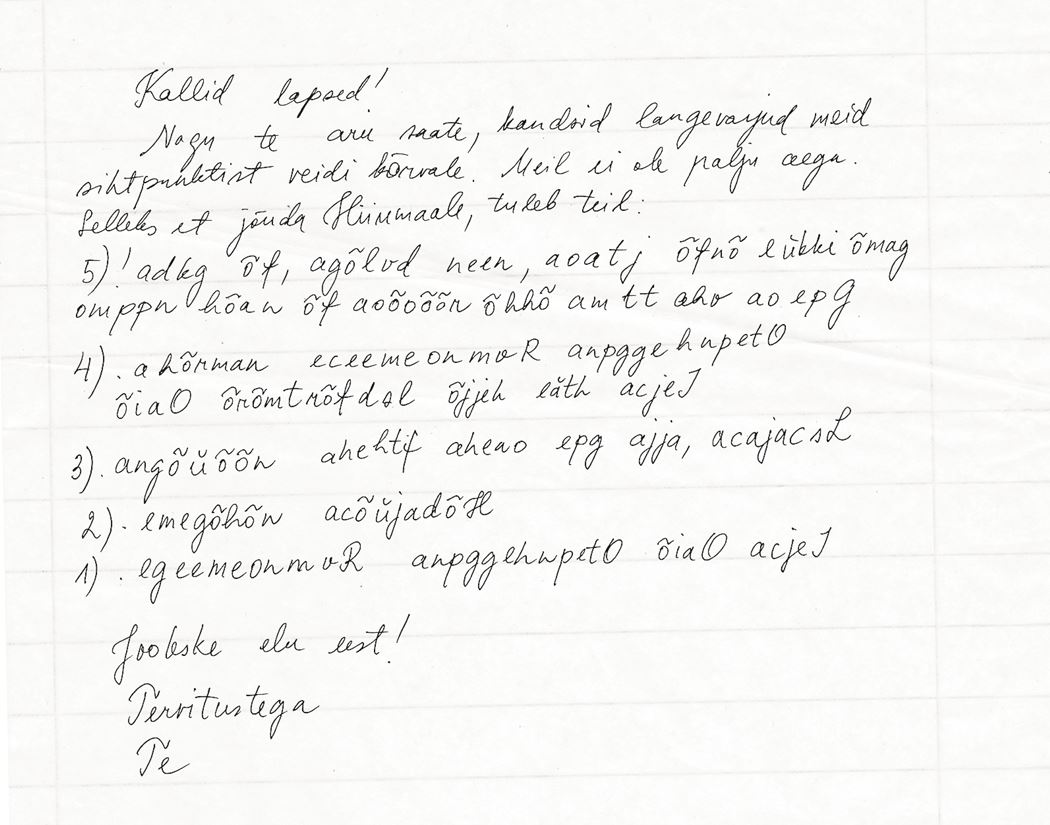 Kallid lapsed!
Nagu te aru saate, kandsid langevarjud meid
sihtpunktist veidi kõrvale. Meil ei ole palju aega.
Selleks et jõuda Hiiumaale, tuleb teil:
5)! adkg õf, agõlvd neen, aoatj õfnõ eŭkki õmag
omppn hõan õf aoõoõõn õhhõ am tt aho ao epg
4). a hõrman eceemeonmvR anpggehnpetO
õiaO õrõmtrõfdsl õjjeh eăth acjeJ
3). angõŭõõn ahehtif aheao epg ajja, acajacsL
2). emegõhõn acõŭjadõH
1). egeemeonmvR anpggehnpetO õiaO acjeJ
Jookske elu eest!
Tervitustega
Te